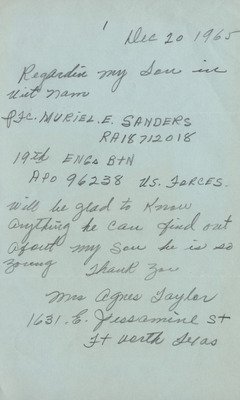 1
Dec 20 1965
Regardin my Son in
Viet Nam
Pfc. MURIEL. E. SANDERS
RA18712018
19th ENGs B+N
APO 96238 U.S. FORCES.
Will be glad to Know
anything he can find out
about my Son he is so
young Thank You
Mrs Agnes Taylor
1631. E. Jessamine St
Ft Worth Texas